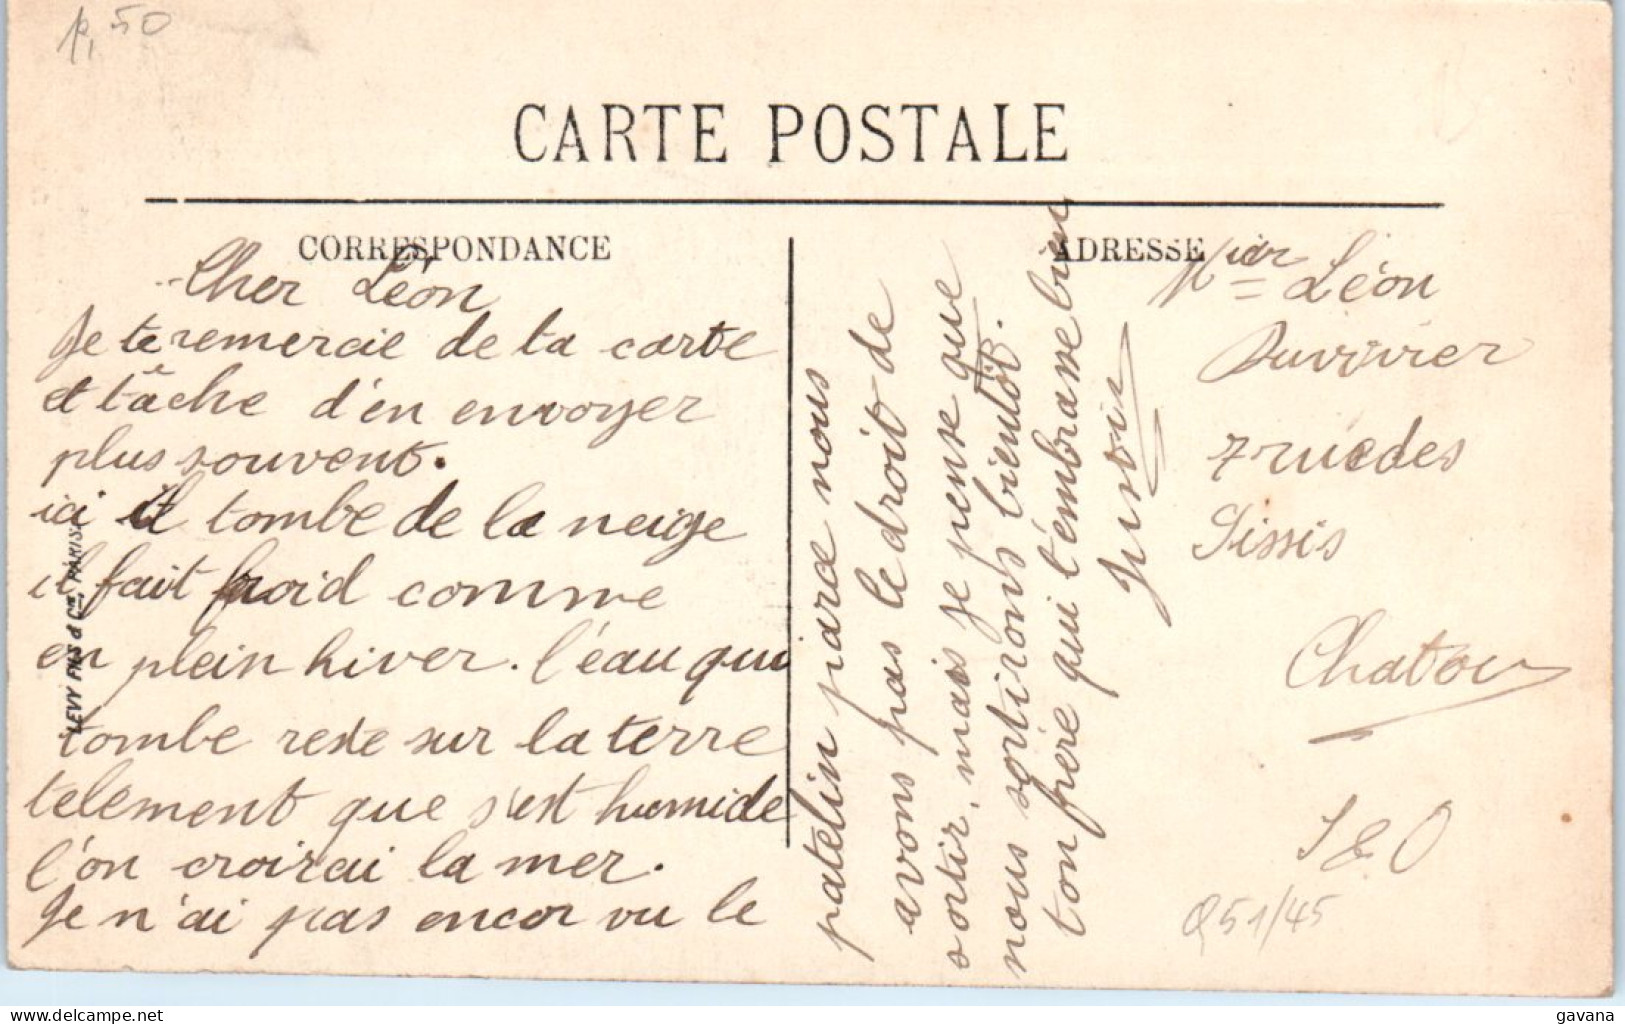 p. 50
CARTE POSTALE
CORRESPONDANCE
ADRESSE
Cher Léon
Je te remercie de ta carte
et tâche d'en envoyer
plus souvent.
ici il tombe de la neige
il fait froid comme
en plein hiver. l'éau qui
tombe reste sur la terre
telément que s'est humide
l'on croirai la mer.
Je n'ai pas encor vu le
patelin parce nous
avons pas le droit de
sortir, mais je pense que
nous sortirons bientôt.
ton frère qui t'embrasse bien
Léon
Duvivier
7 rue des
Sissis
Chatou
S & O
Q51/45
LEVY FILS & Cie, PARIS.
gavana
www.delcampe.net